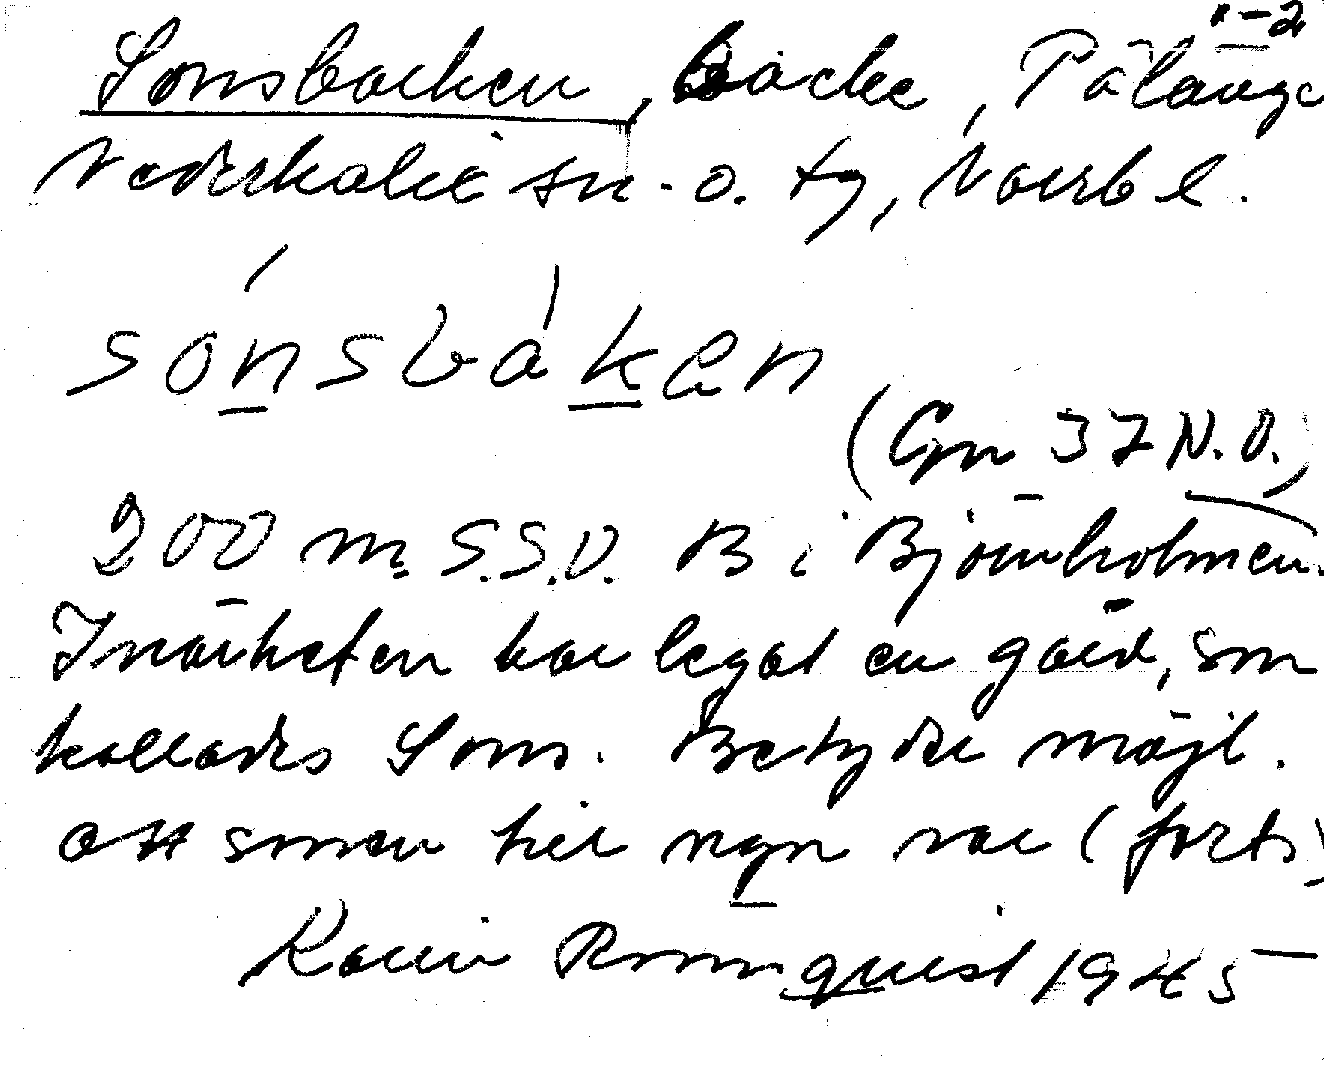 1-2
Sonsbacken, backe, Pålänge
Nederkalix sn. o. tg, Norrb l.
sónsbáken
(Gpn 37 N.O.)
200 m. S.S.O. B i Björnholmen.
I närheten har legat en gård, som
kallades Sons. Betyder möjl.
att sonen här ngn var (forts)
Karin Rönnquist 1945